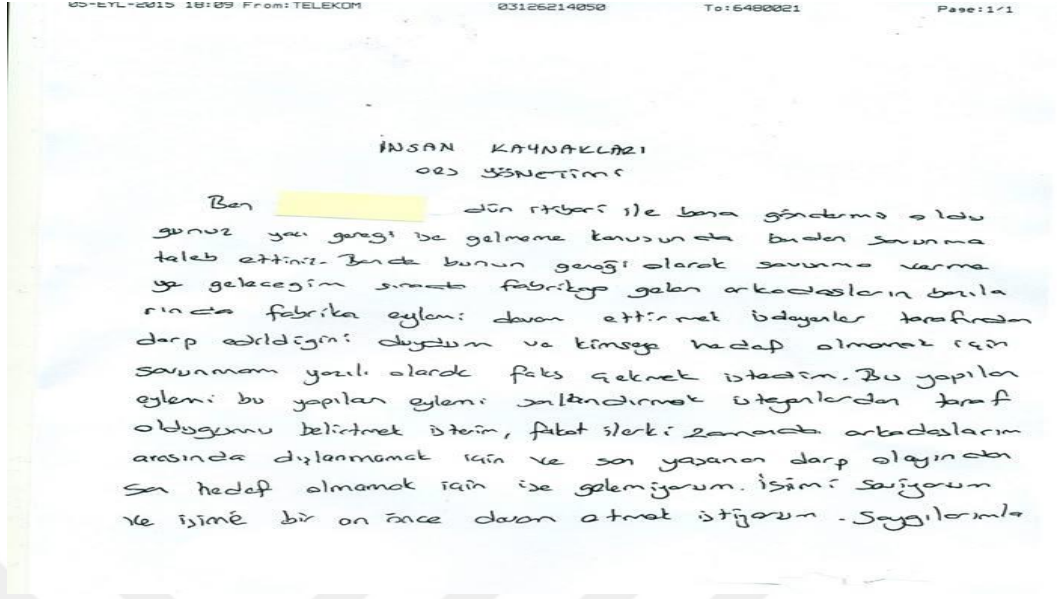 05-EYL-2015 18:09 From:TELEKOM 03126214050 To:6480021 Page:1/1
İNSAN KAYNAKLARI
ORS YÖNETİMİ
Ben dün itibari ile bana göndermiş oldu
gunuz yazı geregi işe gelmeme konusunda benden savunma
taleb ettiniz. Bende bunun gereği olarak savunma verme
ye gelecegim sırada fabrikaya gelen arkadaşların bazıla
rında fabrika eylemi devam ettirmek isteyenler tarafından
darp edildiğini duydum ve kimseye hedef olmamak için
savunmamı yazılı olarak faks çekmek istedim. Bu yapılan
eylemi bu yapılan eylemi sonlandırmak isteyenlerden taraf
oldugumu belirtmek isterim, fakat ilerki zamanda arkadaşlarım
arasında dışlanmamak için ve son yaşanan darp olayından
son hedef olmamak için işe gelemiyorum. İşimi seviyorum
ve işime bir an önce devam etmek istiyorum. Saygılarımla